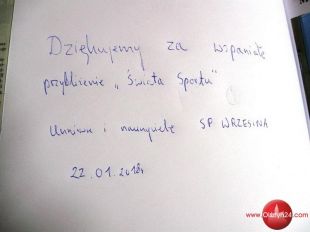 Dziękujemy za wspaniałe
przybliżenie „Świata Sportu"
Uczniowie i nauczyciele SP WRZESINA
22.01.2018r
www.Olsztyn24.com